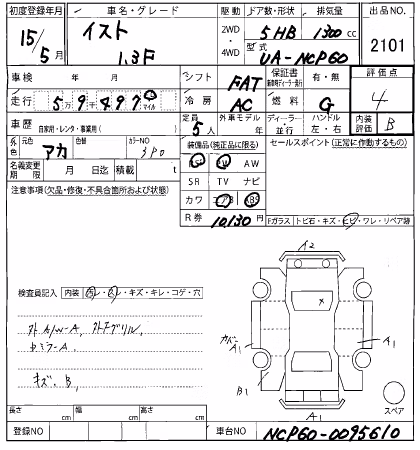 初度登録年月 車名・グレード 駆動 ドア数・形状 排気量 出品NO
15/5月 イスト 1.3F 2WD・4WD 5 HB 1300 cc 2101
型式 UA-NCP60
車検 年 月 シフト FAT 保証書 有・無 評価点
走行 5万9千497 マイル 冷房 AC 燃料 G 4
車歴 自家用・レンタ・事業用( ) 定員 5人 外車モデル 年 ディーラー・並行 ハンドル 左・右 内装評価 B
外色 元色 アカ 色替 カラーNO 3P0 装備品(純正品に限る) セールスポイント (正常に作動するもの)
PS PW AW
名義変更期限 月 日迄 積載 t SR TV ナビ
注意事項(欠品・修復・不具合箇所および状態) カワ エアB ABS
R券 10,130円 Fガラス トビ石・キズ・ヒビ・ワレ・リペア跡
A2
検査員記入 内装 汚レ・スレ・キズ・キレ・コゲ・穴
A1 A1
キズ、B,
B1
A1 スペア
長さ cm 幅 cm 高さ cm
登録NO 車台NO NCP60-0095610